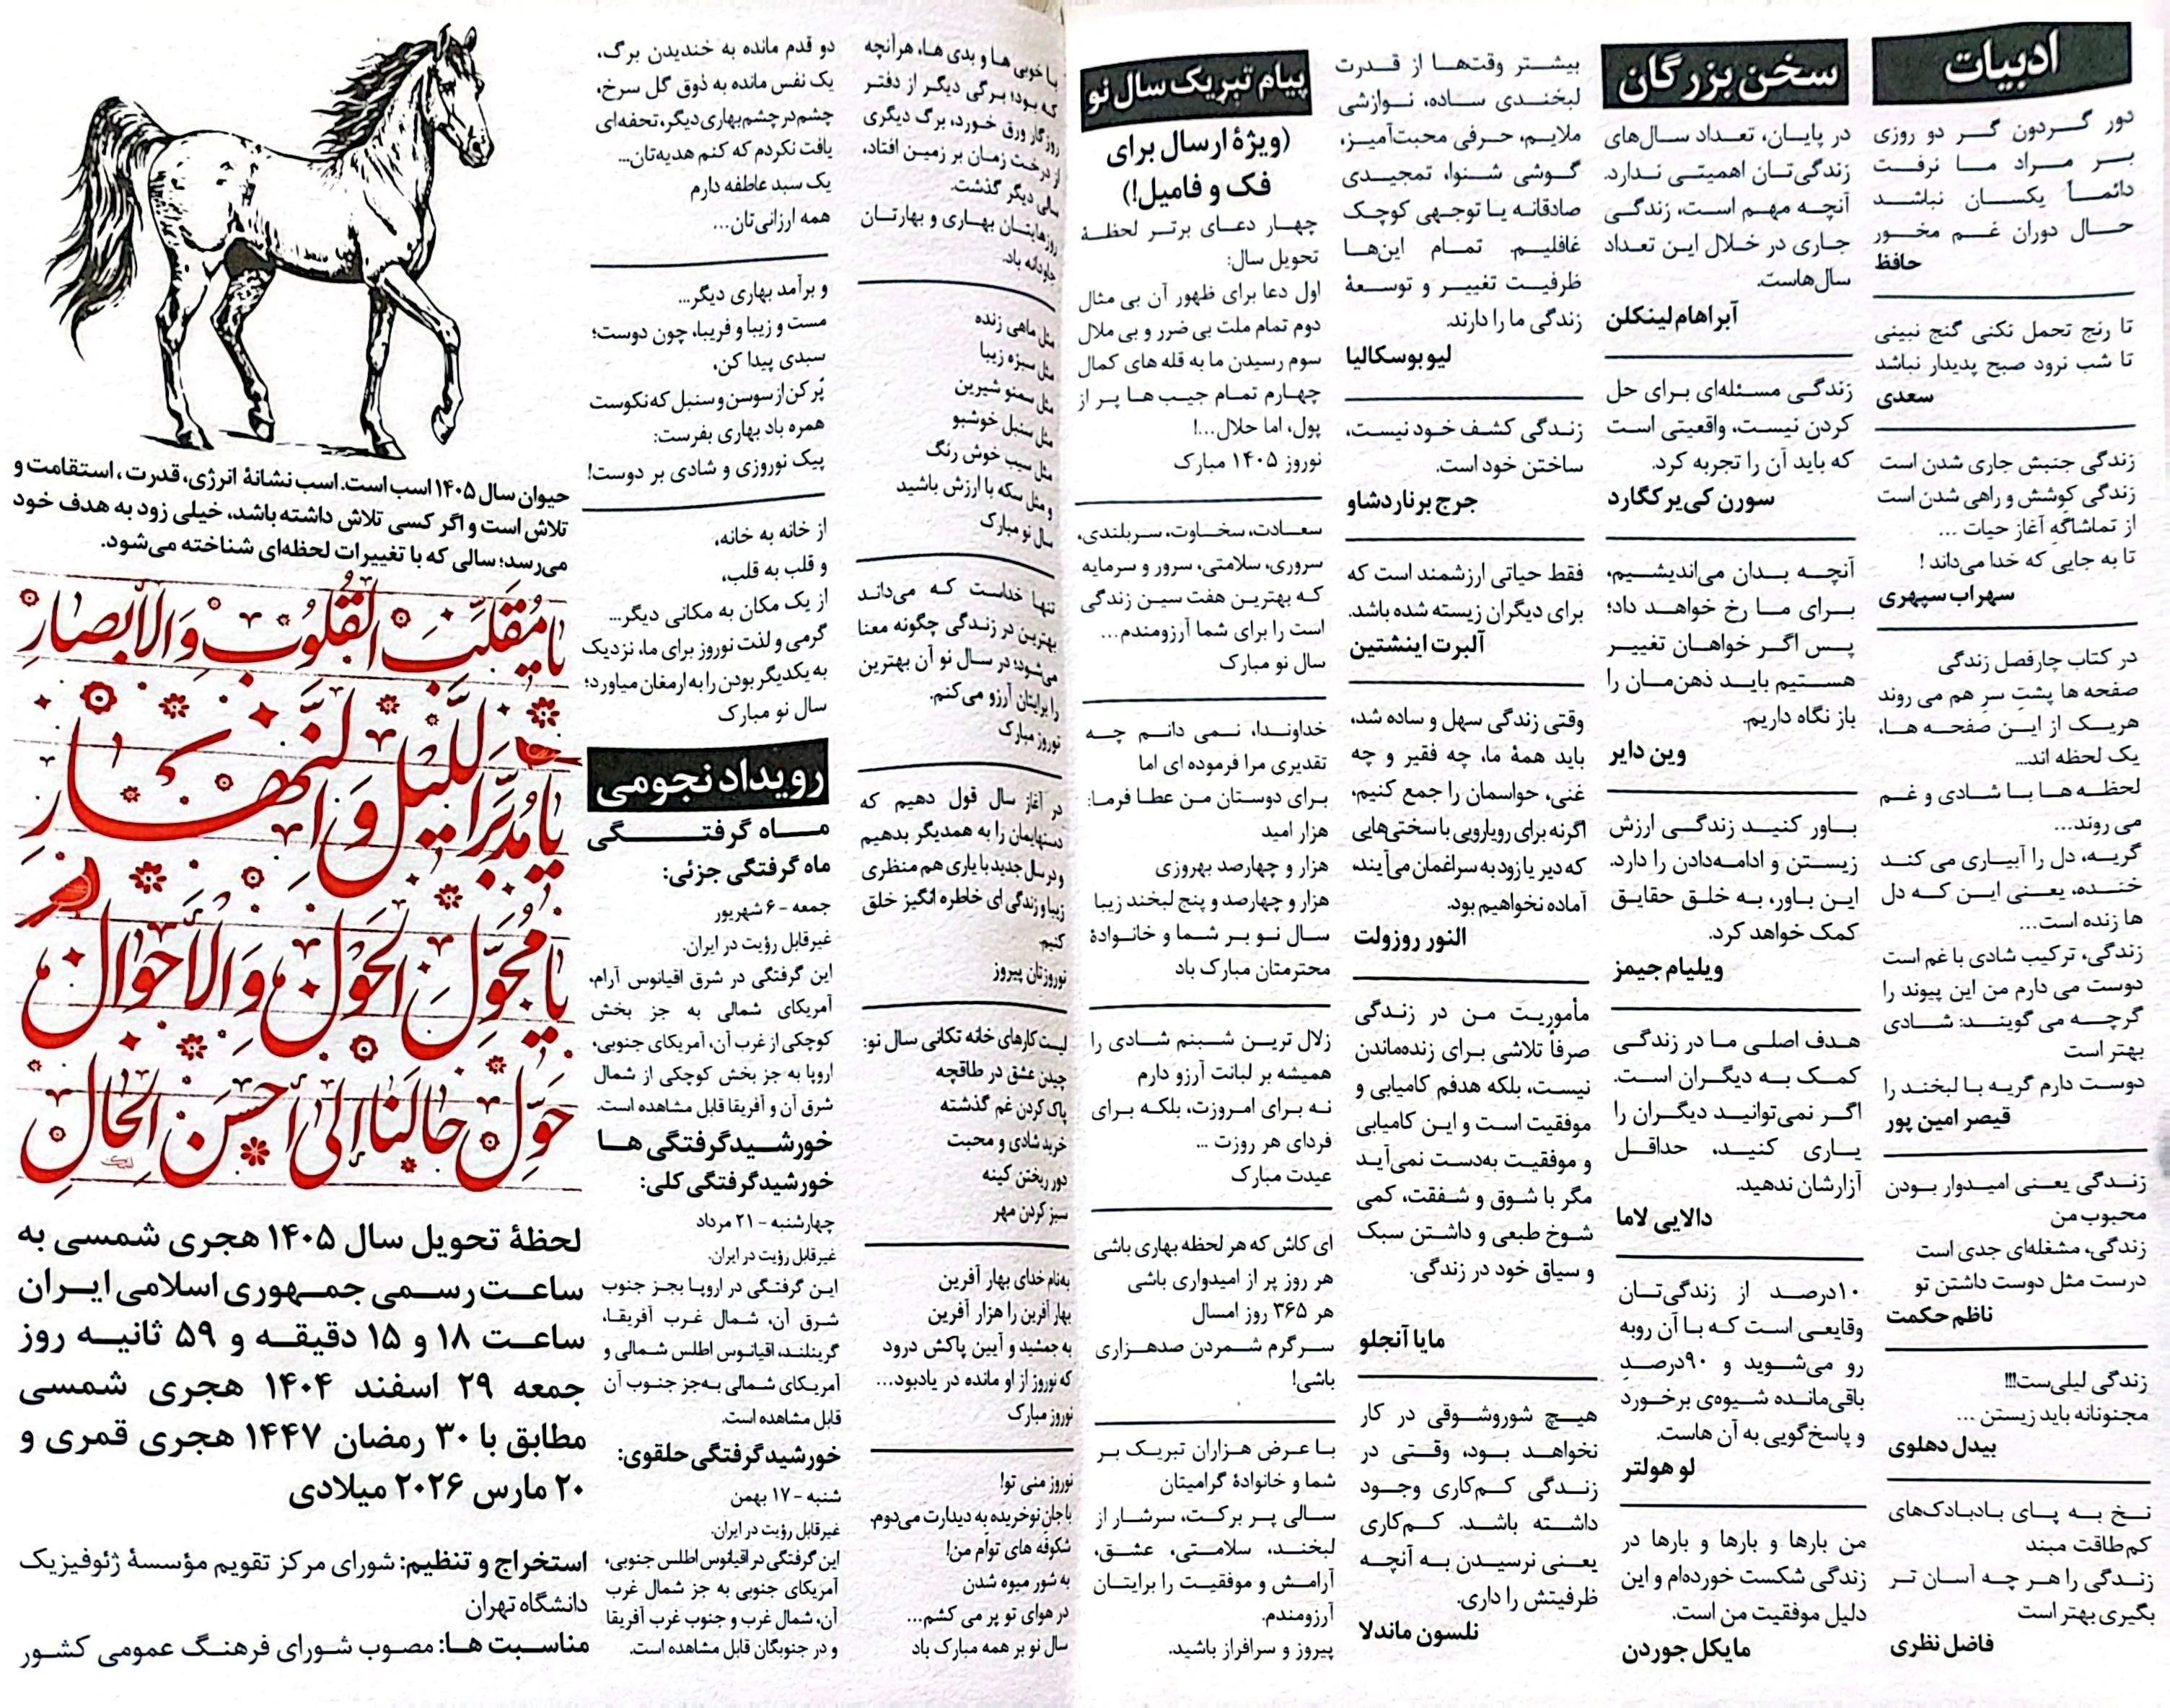 ادبیات
دور گردون گر دو روزی
بر مراد ما نرفت
دائماً یکسان نباشد
حال دوران غم مخور
حافظ
تا رنج تحمل نکنی گنج نبینی
تا شب نرود صبح پدیدار نباشد
سعدی
زندگی جنبش جاری شدن است
زندگی کوشش و راهی شدن است
از تماشاگهِ آغاز حیات ...
تا به جایی که خدا می‌داند !
سهراب سپهری
در کتاب چارفصل زندگی
صفحه ها پشتِ سرِ هم می روند
هریک از این صفحه ها،
یک لحظه اند...
لحظه ها با شادی و غم
می روند...
گریه، دل را آبیاری می کند
خنده، یعنی این که دل
ها زنده است...
زندگی، ترکیب شادی با غم است
دوست می دارم من این پیوند را
گرچه می گویند: شادی
بهتر است
دوست دارم گریه با لبخند را
قیصر امین پور
زندگی یعنی امیدوار بودن
محبوب من
زندگی، مشغله‌ای جدی است
درست مثل دوست داشتن تو
ناظم حکمت
زندگی لیلی‌ست!!!!
مجنونانه باید زیستن ...
بیدل دهلوی
نخ به پای بادبادک‌های
کم‌طاقت مبند
زندگی را هر چه آسان تر
بگیری بهتر است
فاضل نظری
سخن بزرگان
در پایان، تعداد سال‌های
زندگی‌تان اهمیتی ندارد.
آنچه مهم است، زندگی
جاری در خلال این تعداد
سال‌هاست.
آبراهام لینکلن
زندگی مسئله‌ای برای حل
کردن نیست، واقعیتی است
که باید آن را تجربه کرد.
سورن کی‌یرکگارد
آنچه بدان می‌اندیشیم،
برای ما رخ خواهد داد؛
پس اگر خواهان تغییر
هستیم باید ذهن‌مان را
باز نگاه داریم.
وین دایر
باور کنید زندگی ارزش
زیستن و ادامه‌دادن را دارد.
این باور، به خلق حقایق
کمک خواهد کرد.
ویلیام جیمز
هدف اصلی ما در زندگی
کمک به دیگران است.
اگر نمی‌توانید دیگران را
یاری کنید، حداقل
آزارشان ندهید.
دالایی لاما
۱۰درصد از زندگی‌تان
وقایعی است که با آن روبه
رو می‌شوید و ۹۰درصدِ
باقی‌مانده شیوه‌ی برخورد
و پاسخ‌گویی به آن هاست.
لو هولتز
من بارها و بارها و بارها در
زندگی شکست خورده‌ام و این
دلیل موفقیت من است.
مایکل جوردن
بیشتر وقت‌ها از قدرت
لبخندی ساده، نوازشی
ملایم، حرفی محبت‌آمیز،
گوشی شنوا، تمجیدی
صادقانه یا توجهی کوچک
غافلیم. تمام این‌ها
ظرفیت تغییر و توسعهٔ
زندگی ما را دارند.
لیو بوسکالیا
زندگی کشف خود نیست،
ساختن خود است.
جرج برناردشاو
فقط حیاتی ارزشمند است که
برای دیگران زیسته شده باشد.
آلبرت اینشتین
وقتی زندگی سهل و ساده شد،
باید همهٔ ما، چه فقیر و چه
غنی، حواسمان را جمع کنیم،
اگرنه برای رویارویی با سختی‌هایی
که دیر یا زود به سراغمان می‌آیند،
آماده نخواهیم بود.
النور روزولت
مأموریت من در زندگی
صرفاً تلاشی برای زنده‌ماندن
نیست، بلکه هدفم کامیابی و
موفقیت است و این کامیابی
و موفقیت به‌دست نمی‌آید
مگر با شوق و شفقت، کمی
شوخ طبعی و داشتن سبک
و سیاق خود در زندگی.
مایا آنجلو
هیچ شوروشوقی در کار
نخواهد بود، وقتی در
زندگی کم‌کاری وجود
داشته باشد. کم‌کاری
یعنی نرسیدن به آنچه
ظرفیتش را داری.
نلسون ماندلا
پیام تبریک سال نو
(ویژهٔ ارسال برای
فک و فامیل!)
چهار دعای برتر لحظهٔ
تحویل سال:
اول دعا برای ظهور آن بی مثال
دوم تمام ملت بی ضرر و بی ملال
سوم رسیدن ما به قله های کمال
چهارم تمام جیب ها پر از
پول، اما حلال...!
نوروز ۱۴۰۵ مبارک
سعادت، سخاوت، سربلندی،
سروری، سلامتی، سرور و سرمایه
که بهترین هفت سین زندگی
است را برای شما آرزومندم...
سال نو مبارک
خداوندا، نمی دانم چه
تقدیری مرا فرموده ای اما
برای دوستان من عطا فرما:
هزار امید
هزار و چهارصد بهروزی
هزار و چهارصد و پنج لبخند زیبا
سال نو بر شما و خانوادهٔ
محترمتان مبارک باد
زلال ترین شبنم شادی را
همیشه بر لبانت آرزو دارم
نه برای امروزت، بلکه برای
فردای هر روزت ...
عیدت مبارک
ای کاش که هر لحظه بهاری باشی
هر روز پر از امیدواری باشی
هر ۳۶۵ روز امسال
سرگرم شمردن صدهزاری
باشی!
با عرض هزاران تبریک بر
شما و خانوادهٔ گرامیتان
سالی پر برکت، سرشار از
لبخند، سلامتی، عشق،
آرامش و موفقیت را برایتان
آرزومندم.
پیروز و سرافراز باشید.
با خوبی ها و بدی ها، هرآنچه
که بود؛ برگی دیگر از دفتر
روزگار ورق خورد، برگ دیگری
از درخت زمان بر زمین افتاد،
سالی دیگر گذشت.
روزهایتان بهاری و بهارتان
جاودانه باد.
مثل ماهی زنده
مثل سبزه زیبا
مثل سمنو شیرین
مثل سنبل خوشبو
مثل سیب خوش رنگ
و مثل سکه با ارزش باشید
سال نو مبارک
تنها خداست که می‌داند
بهترین در زندگی چگونه معنا
می‌شود؛ در سال نو آن بهترین
را برایتان آرزو می‌کنم.
نوروز مبارک
در آغاز سال قول دهیم که
دستهایمان را به همدیگر بدهیم
و در سال جدید با یاری هم منظری
زیبا و زندگی ای خاطره انگیز خلق
کنیم.
نوروزتان پیروز
لیست کارهای خانه تکانی سال نو:
چیدن عشق در طاقچه
پاک کردن غم گذشته
خرید شادی و محبت
دور ریختن کینه
سبز کردن مهر
به‌نام خدای بهار آفرین
بهار آفرین را هزار آفرین
به جمشید و آیین پاکش درود
که نوروز از او مانده در یادبود...
نوروز مبارک
نوروز منی تو!
با جان نوخریده به دیدارت می‌دوم.
شکوفه های توأم من!
به شور میوه شدن
در هوای تو پر می کشم...
سال نو بر همه مبارک باد
دو قدم مانده به خندیدن برگ،
یک نفس مانده به ذوق گل سرخ،
چشم در چشم بهاری دیگر، تحفه‌ای
یافت نکردم که کنم هدیه‌تان...
یک سبد عاطفه دارم
همه ارزانی‌تان...
و برآمد بهاری دیگر...
مست و زیبا و فریبا، چون دوست؛
سبدی پیدا کن،
پُر کن از سوسن و سنبل که نکوست
همره باد بهاری بفرست:
پیک نوروزی و شادی بر دوست!
از خانه به خانه،
و قلب به قلب،
از یک مکان به مکانی دیگر...
گرمی و لذت نوروز برای ما، نزدیک
به یکدیگر بودن را به ارمغان میاورد؛
سال نو مبارک
رویداد نجومی
ماه گرفتگی
ماه گرفتگی جزئی:
جمعه - ۶ شهریور
غیرقابل رؤیت در ایران.
این گرفتگی در شرق اقیانوس آرام،
آمریکای شمالی به جز بخش
کوچکی از غرب آن، آمریکای جنوبی،
اروپا به جز بخش کوچکی از شمال
شرق آن و آفریقا قابل مشاهده است.
خورشیدگرفتگی ها
خورشیدگرفتگی کلی:
چهارشنبه - ۲۱ مرداد
غیرقابل رؤیت در ایران.
این گرفتگی در اروپا بجز جنوب
شرق آن، شمال غرب آفریقا،
گرینلند، اقیانوس اطلس شمالی و
آمریکای شمالی به‌جز جنوب آن
قابل مشاهده است.
خورشیدگرفتگی حلقوی:
شنبه - ۱۷ بهمن
غیرقابل رؤیت در ایران.
این گرفتگی در اقیانوس اطلس جنوبی،
آمریکای جنوبی به جز شمال غرب
آن، شمال غرب و جنوب غرب آفریقا
و در جنوبگان قابل مشاهده است.
حیوان سال ۱۴۰۵ اسب است. اسب نشانهٔ انرژی، قدرت، استقامت و
تلاش است و اگر کسی تلاش داشته باشد، خیلی زود به هدف خود
می‌رسد؛ سالی که با تغییرات لحظه‌ای شناخته می‌شود.
یا مُقَلِّبَ القُلُوبِ وَالأَبصارِ
یا مُدَبِّرَ اللَّیلِ وَ النَّهارِ
یا مُحَوِّلَ الحَولِ وَ الأَحوالِ
حَوِّل حالَنا إِلی أَحسَنِ الحالِ
لحظهٔ تحویل سال ۱۴۰۵ هجری شمسی به
ساعت رسمی جمهوری اسلامی ایران
ساعت ۱۸ و ۱۵ دقیقه و ۵۹ ثانیه روز
جمعه ۲۹ اسفند ۱۴۰۴ هجری شمسی
مطابق با ۳۰ رمضان ۱۴۴۷ هجری قمری و
۲۰ مارس ۲۰۲۶ میلادی
استخراج و تنظیم: شورای مرکز تقویم مؤسسهٔ ژئوفیزیک
دانشگاه تهران
مناسبت ها: مصوب شورای فرهنگ عمومی کشور